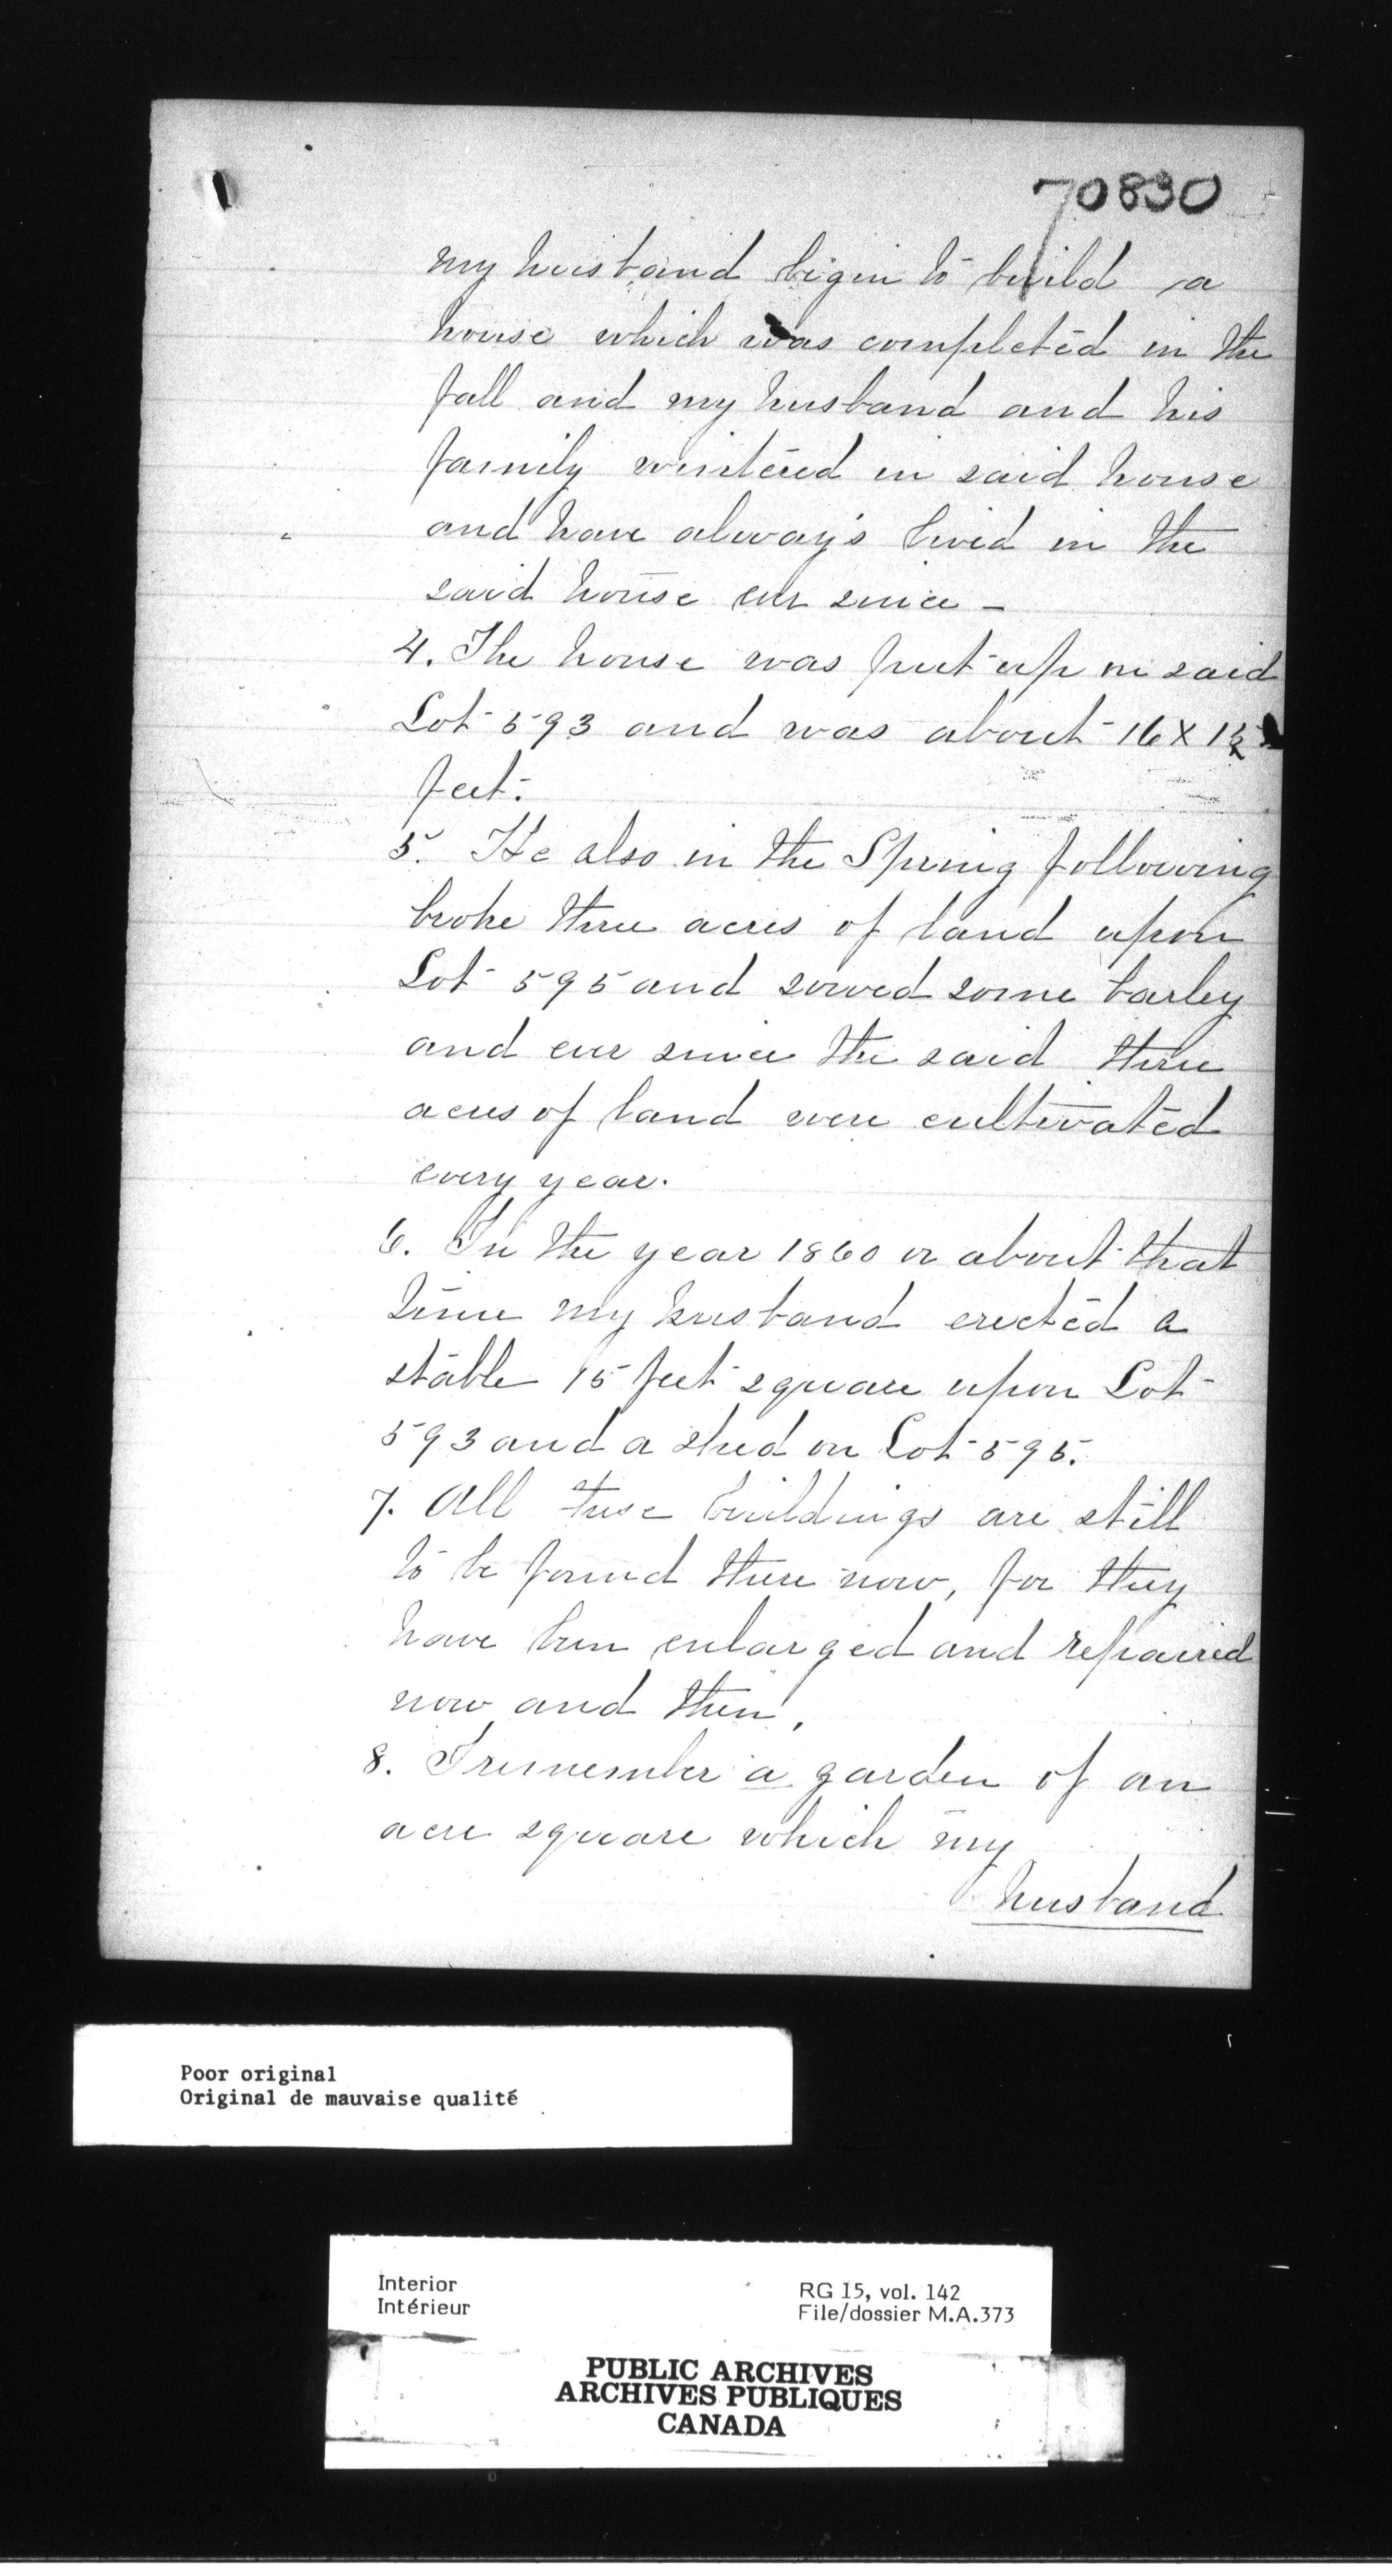 70830
my husband begin to build a
house which was completed in the
fall and my husband and his
family wintered in said house
and have always lived in the
said house ever since -
4. The house was put up on said
Lot 593 and was about 16 X
feet.
5. He also in the Spring following
broke three acres of land upon
Lot 595 and sowed some barley
and ever since the said three
acres of land were cultivated
every year.
6. In the year 1860 or about that
time my husband erected a
stable 15 feet square upon Lot
593 and a shed on Lot 595.
7. All these buildings are still
to be found there now, for they
have been enlarged and repaired
now and then.
8. I remember a garden of an
acre square which my
husband
Poor original
Original de mauvaise qualité
Interior
Intérieur
RG 15, vol. 142
File/dossier M.A.373
PUBLIC ARCHIVES
ARCHIVES PUBLIQUES
CANADA